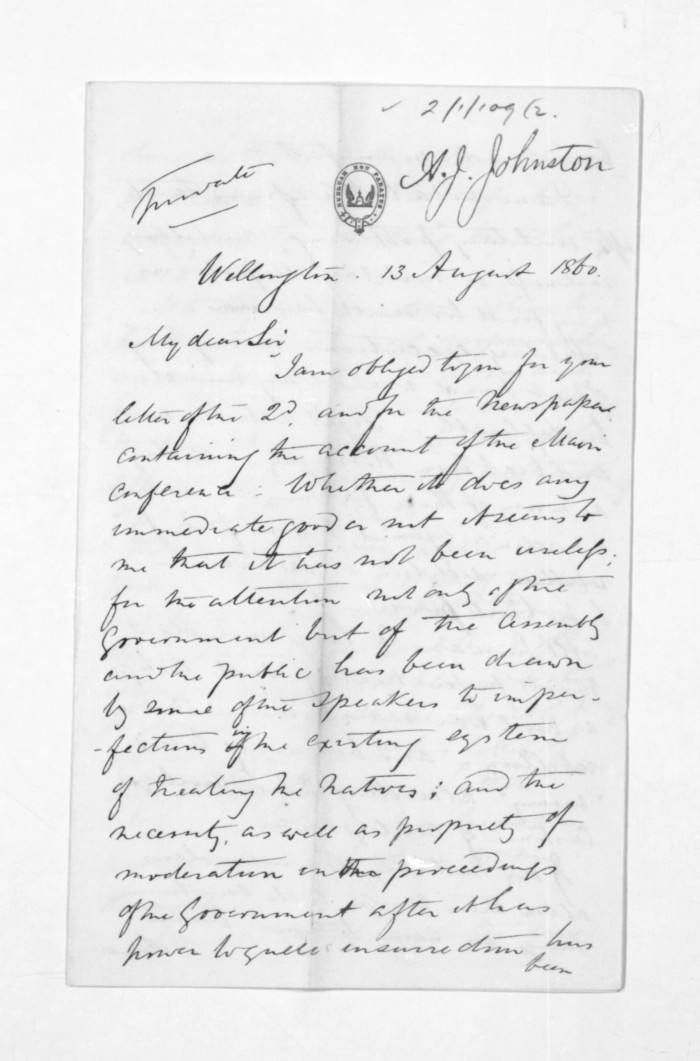 2/1/109/2.
A. J. Johnston
Private
NUNQUAM NON PARATUS
Wellington. 13 August 1860.
My dear Sir,
I am obliged to you for your
letter of the 2d. and for the Newspapers
containing the account of the Maori
conference: Whether it does any
immediate good or not it seems to
me that it has not been useless;
for the attention not only of the
Government but of the Assembly
and the public has been drawn
by some of the speakers to imper-
-fections in the existing system
of treating the Natives; and the
necessity, as well as propriety of
moderation in the proceedings
of the Government after it has
power to quell insurrection has
been